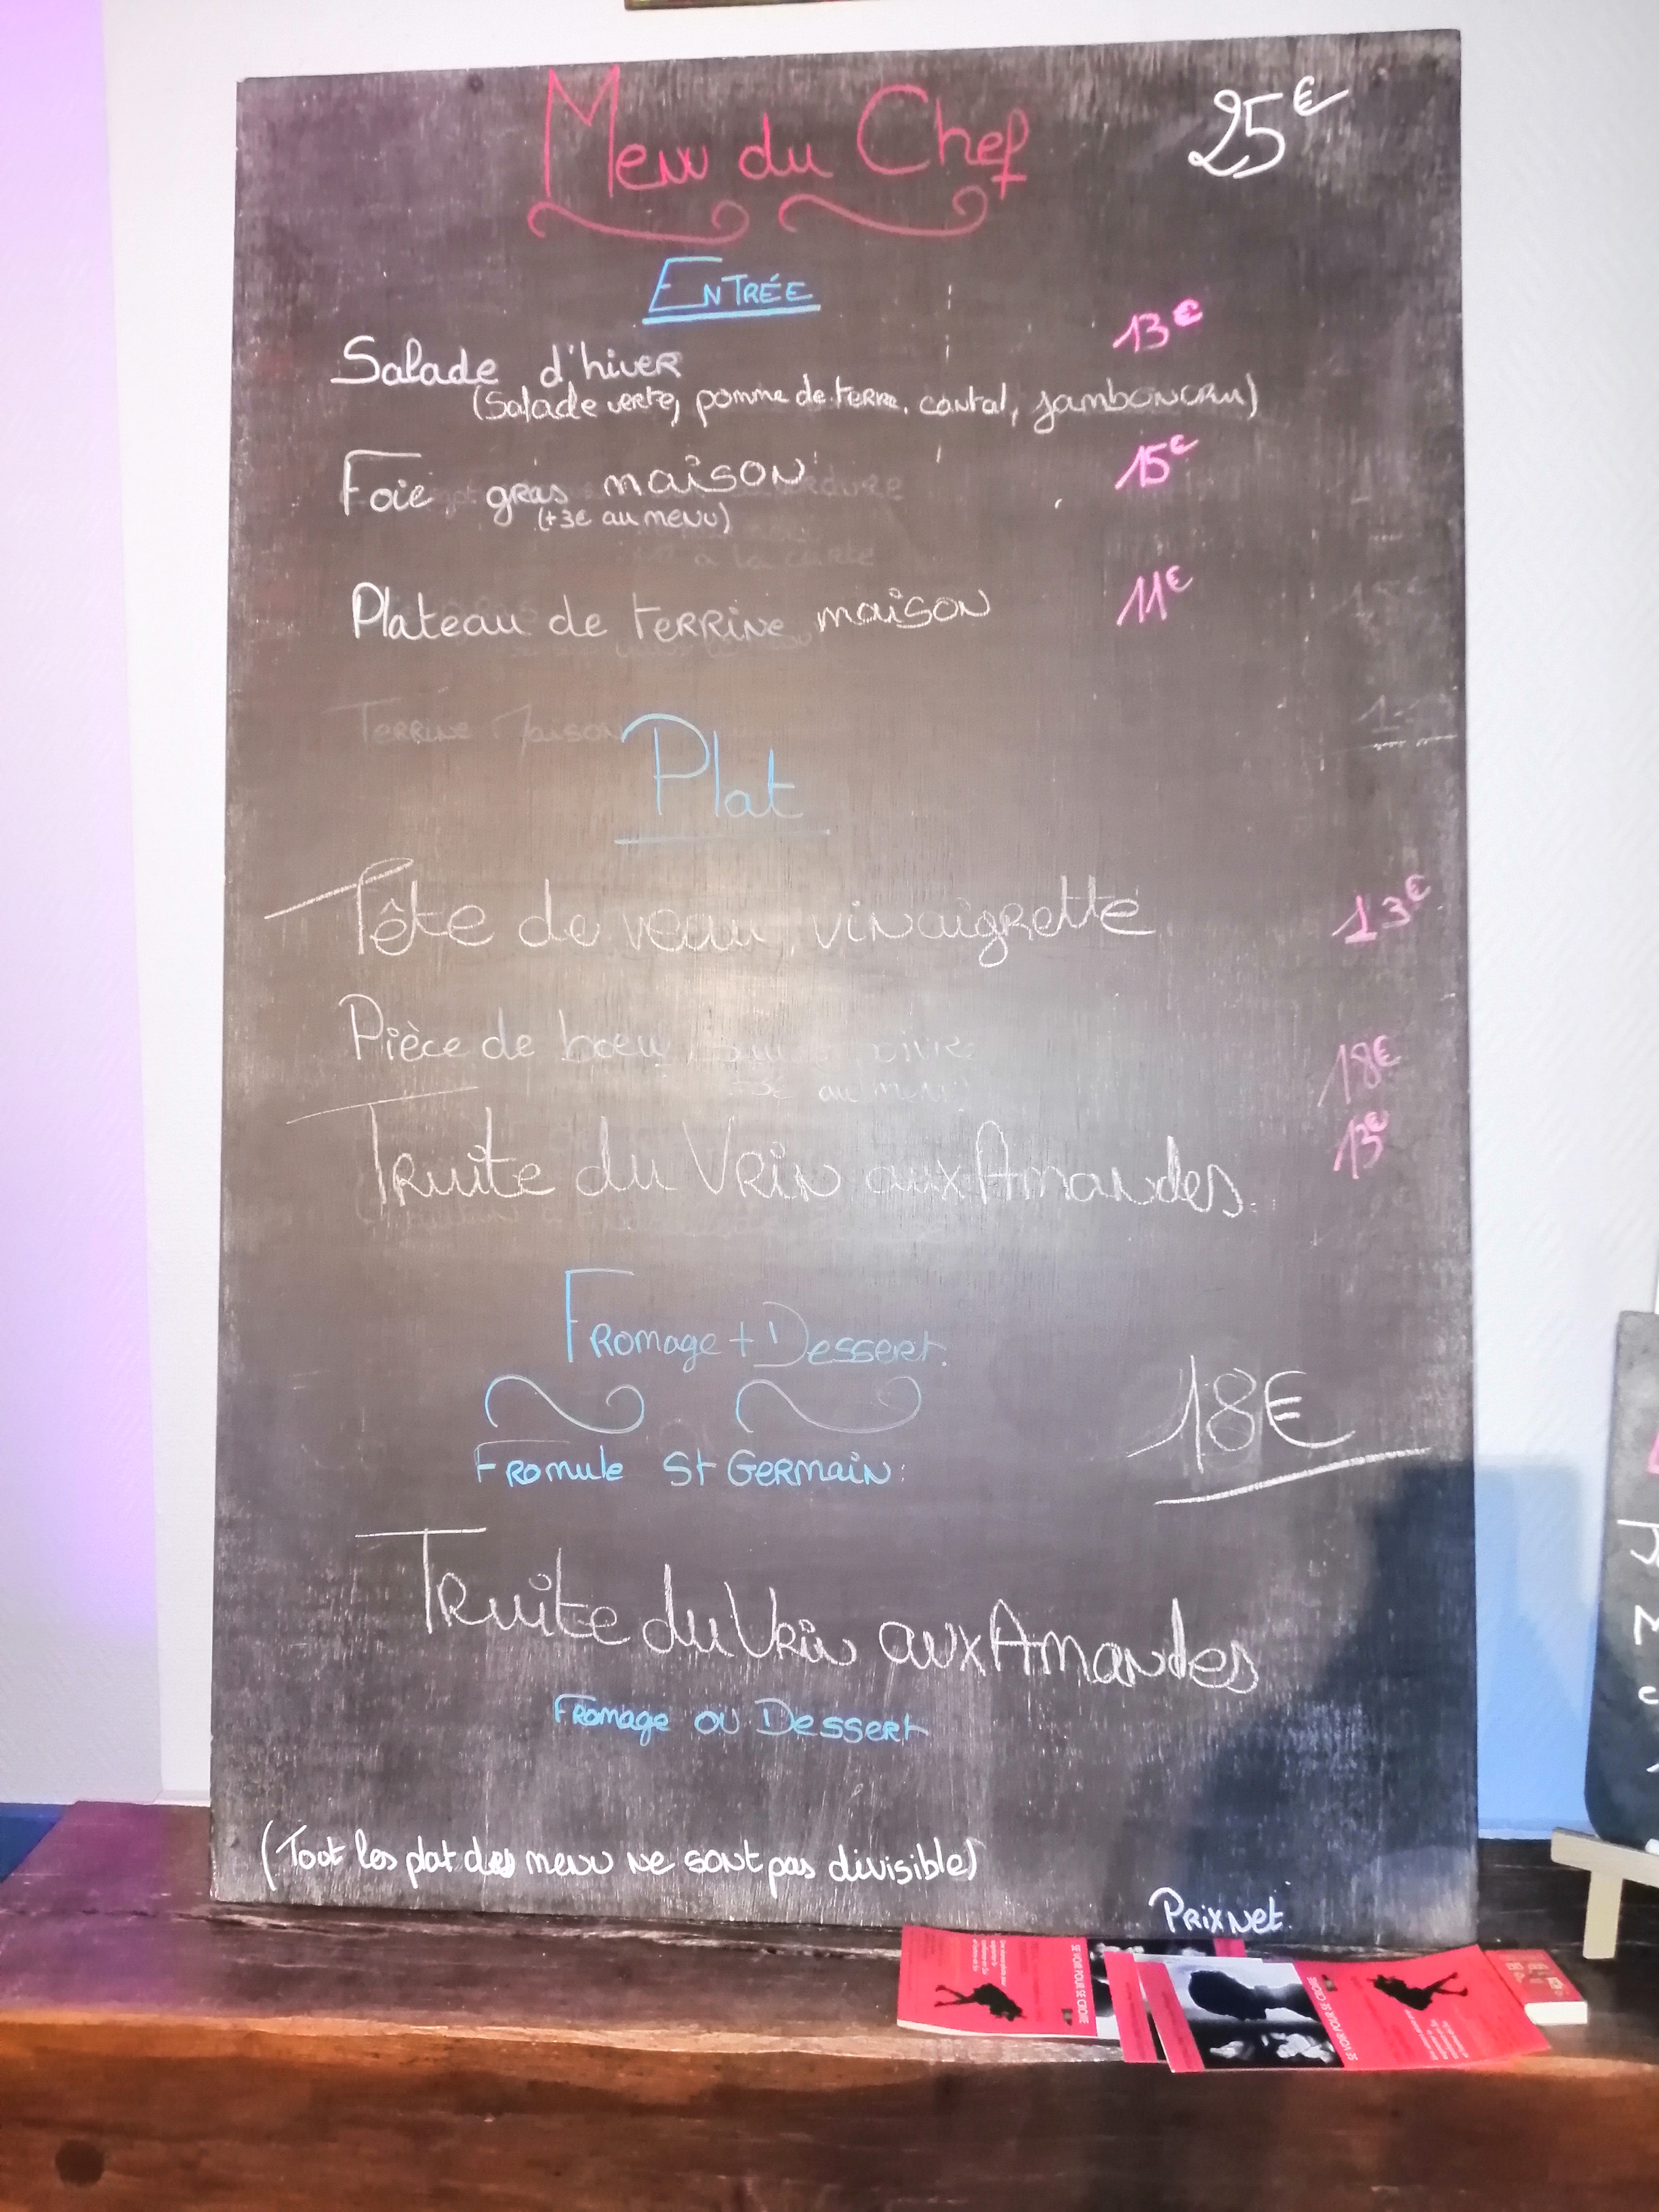 Menu du Chef
25€
ENTRÉE
Salade d'hiver 13€
(Salade verte, pomme de terre, cantal, jambon cru)
Foie gras maison 15€
(+3€ au menu)
à la carte
Plateau de terrine maison 11€
Terrine Maison
Plat
Tête de veau vinaigrette 13€
Pièce de boeuf 18€
3€ au menu
Truite du Vrin aux Amandes 13€
Fromage + Dessert.
18€
Fromule St Germain:
Truite du Vrin aux Amandes
Fromage ou Dessert
(Toot les plat des menu ne sont pas divisible)
Prix Net.
SE VOIR POUR SE CROIRE
SE VOIR POUR SE CROIRE